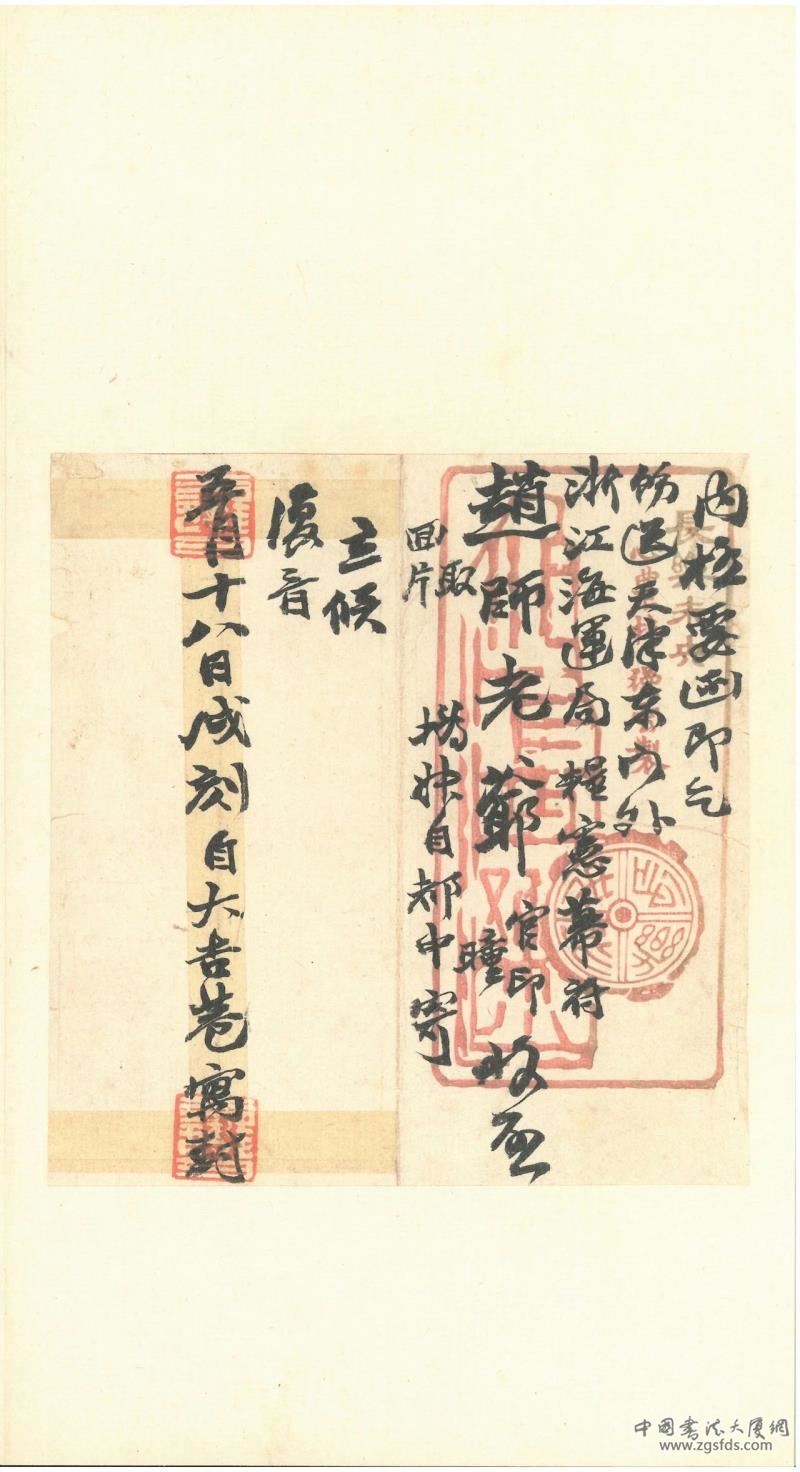 内極要函即乞
飭送天津東門外
浙江海運局糧憲幕府
趙師老爺官印瞳收啟
取回片
撝叔自都中寄
立候
復音
五月十八日戌刻自大吉巷寓封
長樂未央
中国書法大厦網
www.zgsfds.com